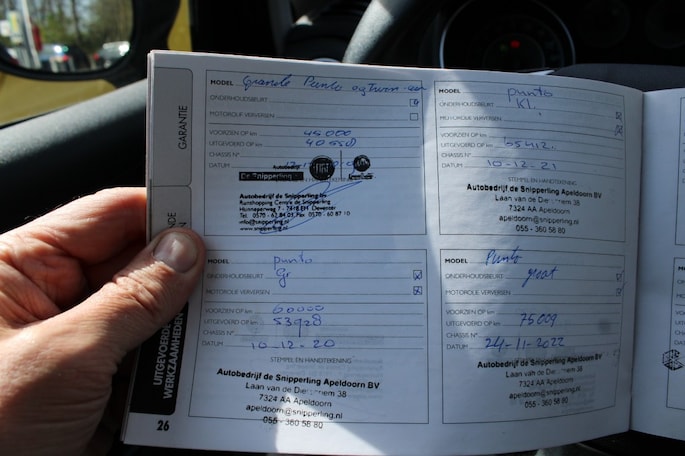 GARANTIE
UITGEVOERDE
WERKZAAMHEDEN
26
MODEL Grande Punto
ONDERHOUDSBEURT
MOTOROLIE VERVERSEN
VOORZIEN OP km 45000
UITGEVOERD OP km
CHASSIS N°
DATUM
Autobedrijf
De Snipperling
FIAT
Autobedrijf de Snipperling
Runshopping Centre de Snipperling
Hunneperweg 7 - 7418 EH Deventer
info@snipperling.nl
www.snipperling.nl
MODEL punto
ONDERHOUDSBEURT Kl.
MOTOROLIE VERVERSEN
VOORZIEN OP km
UITGEVOERD OP km 65412.
CHASSIS N°
DATUM 10-12-21
STEMPEL EN HANDTEKENING
Autobedrijf de Snipperling Apeldoorn BV
Laan van de Dierenriem 38
7324 AA Apeldoorn
apeldoorn@snipperling.nl
055 - 360 58 80
MODEL punto
ONDERHOUDSBEURT Gr
MOTOROLIE VERVERSEN
VOORZIEN OP km 60000
UITGEVOERD OP km
CHASSIS N°
DATUM 10-12-20
STEMPEL EN HANDTEKENING
Autobedrijf de Snipperling Apeldoorn BV
Laan van de Dierenriem 38
7324 AA Apeldoorn
apeldoorn@snipperling.nl
055 - 360 58 80
MODEL Punto
ONDERHOUDSBEURT groot
MOTOROLIE VERVERSEN
VOORZIEN OP km
UITGEVOERD OP km 75009
CHASSIS N°
DATUM 24-11-2022
STEMPEL EN HANDTEKENING
Autobedrijf de Snipperling Apeldoorn BV
Laan van de Dierenriem 38
7324 AA Apeldoorn
apeldoorn@snipperling.nl
055 - 360 58 80